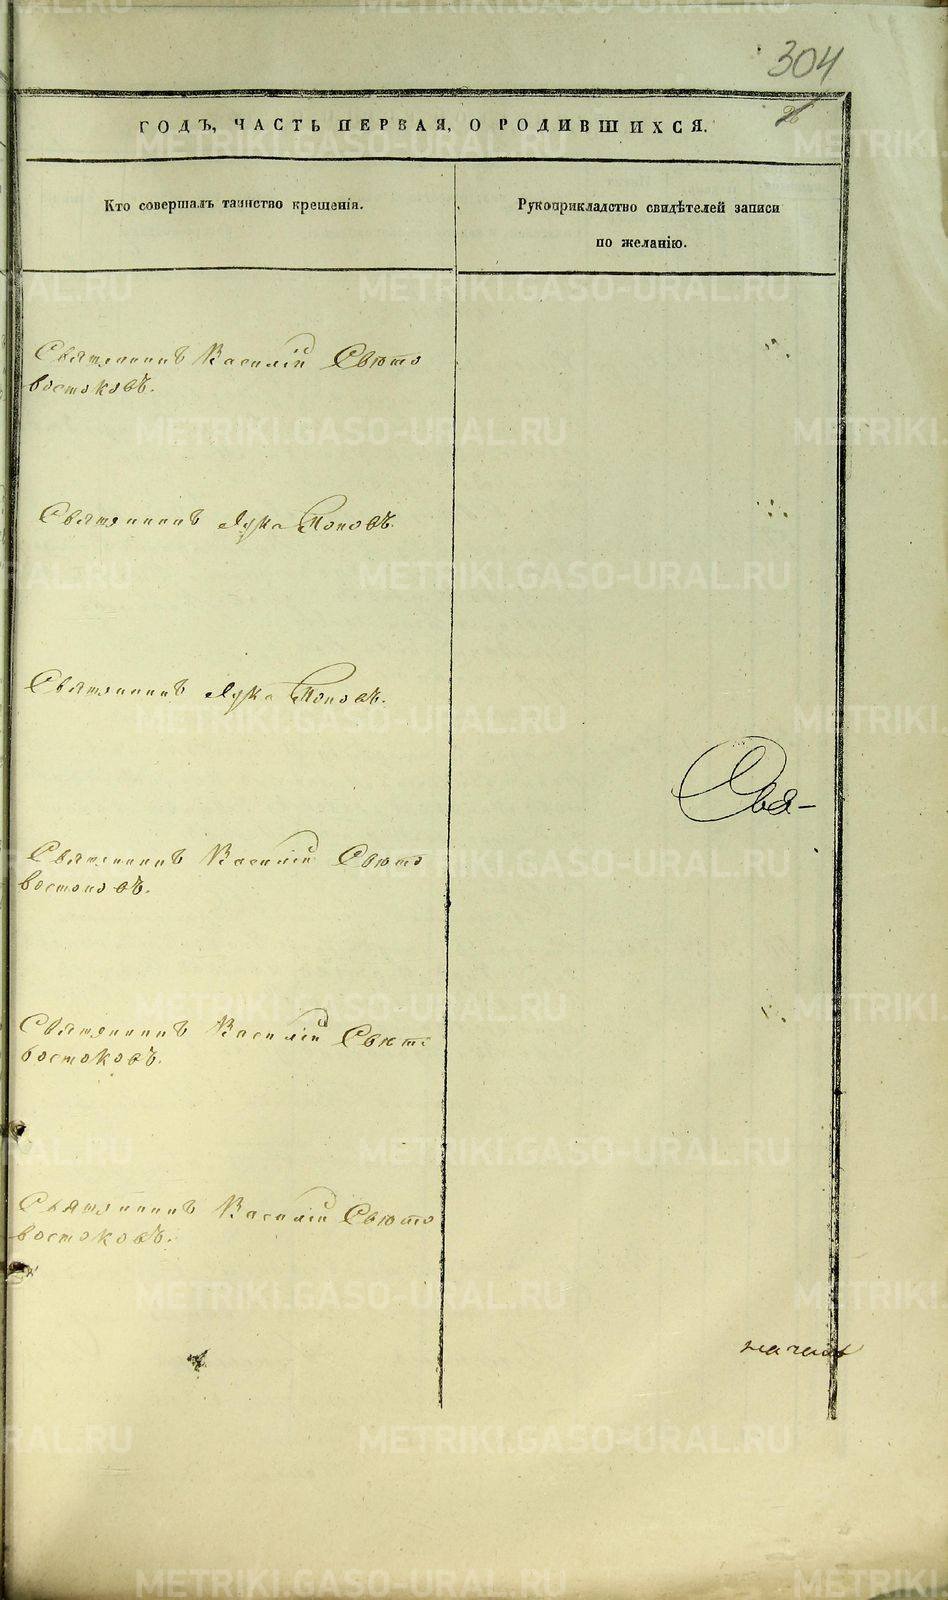 304
26
ГОДЪ, ЧАСТЬ ПЕРВАЯ, О РОДИВШИХСЯ.
Кто совершалъ таинство крещенія.
Рукоприкладство свидѣтелей записи
по желанію.
Священникъ Василій Свѣто
востоковъ.
Священникъ Лука Поповъ.
Священникъ Лука Поповъ.
Свя-
Священникъ Василій Свѣто
востоковъ.
Священникъ Василій Свѣто
востоковъ.
Священникъ Василій Свѣто
востоковъ.
METRIKI.GASO-URAL.RU